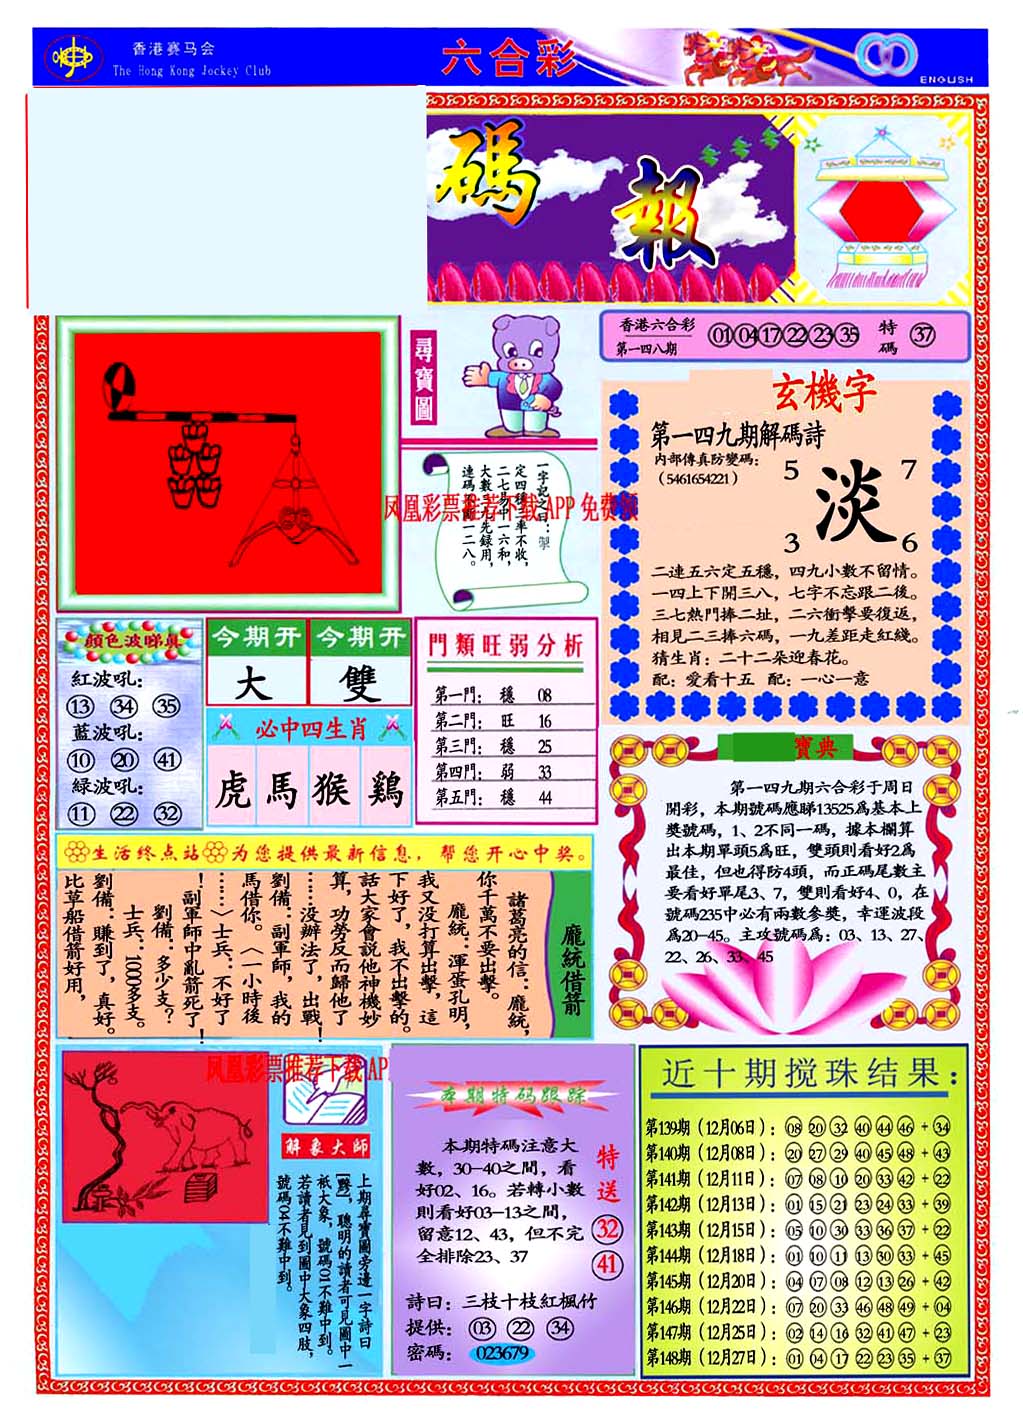 香港赛马会
The Hong Kong Jockey Club
六合彩
ENGLISH
碼報
尋寶圖
香港六合彩
第一四八期
01 04 17 22 23 35
特碼
37
玄機字
第一四九期解碼詩
内部傳真防變碼：
（5461654221）
5 7
淡
3 6
二連五六定五穩，四九小數不留情。
一四上下開三八，七字不忘跟二後。
三七熱門捧二址，二六衝擊要復返，
相見二三捧六碼，一九差距走紅綫。
猜生肖：二十二朵迎春花。
配：愛看十五 配：一心一意
一字記之曰：
定四穩三車不收，
二七易中一六和，
大數三九先録用，
連碼必開一二八。
凤凰彩票推荐下载 APP 免费领
顔色波睇真
紅波吼：
13 34 35
藍波吼：
10 20 41
緑波吼：
11 22 32
今期开 今期开
大 雙
必中四生肖
虎 馬 猴 鷄
門類旺弱分析
第一門： 穩 08
第二門： 旺 16
第三門： 穩 25
第四門： 弱 33
第五門： 穩 44
寶典
第一四九期六合彩于周日
開彩，本期號碼應睇13525爲基本上
獎號碼，1、2不同一碼，據本欄算
出本期單頭5爲旺，雙頭則看好2爲
最佳，但也得防4頭，而正碼尾數主
要看好單尾3、7，雙則看好4、0，在
號碼235中必有兩數參獎，幸運波段
爲20-45。主攻號碼爲：03、13、27、
22、26、33、45
生活终点站 为您提供最新信息，帮您开心中奖。
龐統借箭
諸葛亮的信：龐統，
你千萬不要出擊。
龐統：渾蛋孔明，
我又没打算出擊，這
下好了，我不出擊的。
話大家會説他神機妙
算，功勞反而歸他了
……没辦法了，出戰！
劉備：副軍師，我的
馬借你。〈一小時後
……〉士兵：不好了
！副軍師中亂箭死了！
劉備：多少支？
士兵：10000多支。
劉備：賺到了，真好。
比草船借箭好用，
凤凰彩票推荐下载 AP
解象大師
上期尋寶圖旁邊一字詩曰
[獸]，聰明的讀者可見圖中一
衹大象，號碼01不難中到。
若讀者見到圖中大象四肢，
號碼04不難中到。
本期特码跟踪
本期特碼注意大
數，30-40之間，看
好02、16。若轉小數
則看好03-13之間，
留意12、43，但不完
全排除23、37
特送
32
41
詩曰：三枝十枝紅楓竹
提供： 03 22 34
密碼： 023679
近十期搅珠结果：
第139期（12月06日）：08 20 32 40 44 46 + 34
第140期（12月08日）：20 27 29 40 45 48 + 43
第141期（12月11日）：07 08 10 20 33 42 + 22
第142期（12月13日）：01 15 21 23 24 33 + 39
第143期（12月15日）：05 10 30 33 36 37 + 22
第144期（12月18日）：01 10 11 13 30 33 + 45
第145期（12月20日）：04 07 08 12 13 26 + 42
第146期（12月22日）：07 20 33 46 48 49 + 04
第147期（12月25日）：02 14 16 32 41 47 + 23
第148期（12月27日）：01 04 17 22 23 35 + 37